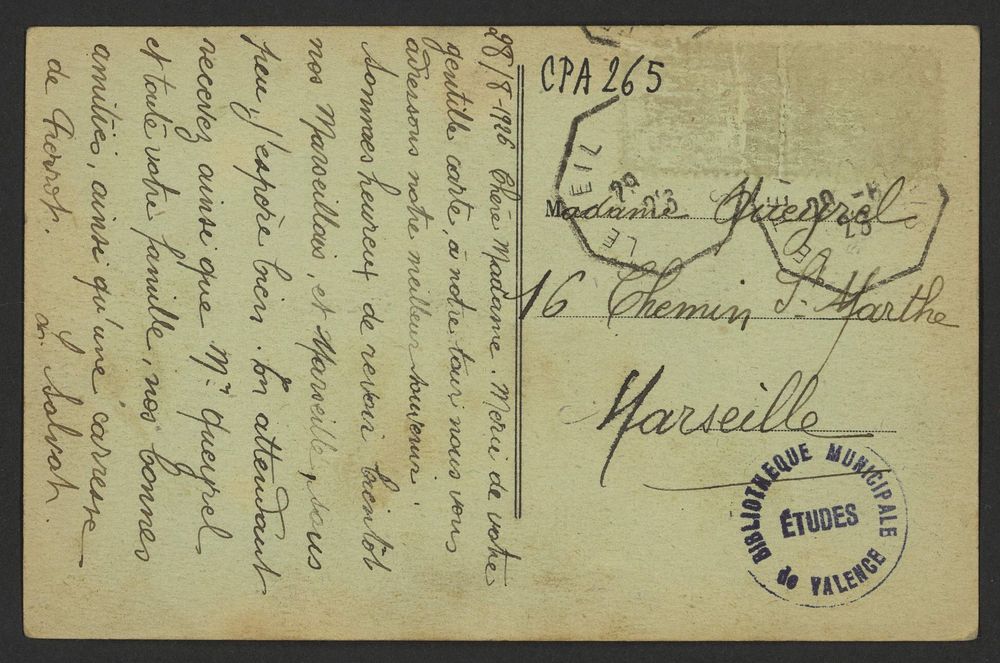 28/8-1926 Chère Madame. Merci de votre
gentille carte, à notre tour nous vous
adressons notre meilleur souvenir.
Sommes heureux de revoir bientôt
nos Marseillais, et Marseille, sous
peu, j'espère bien. En attendant
recevez ainsi que Mr Queyrel
et toute votre famille, nos bonnes
amitiés, ainsi qu'une carresse
de Pierrot.
Salvat
CPA 265
Madame Queyrel
16 Chemin Ste Marthe
Marseille
LE TEIL
BIBLIOTHEQUE MUNICIPALE
ÉTUDES
de VALENCE